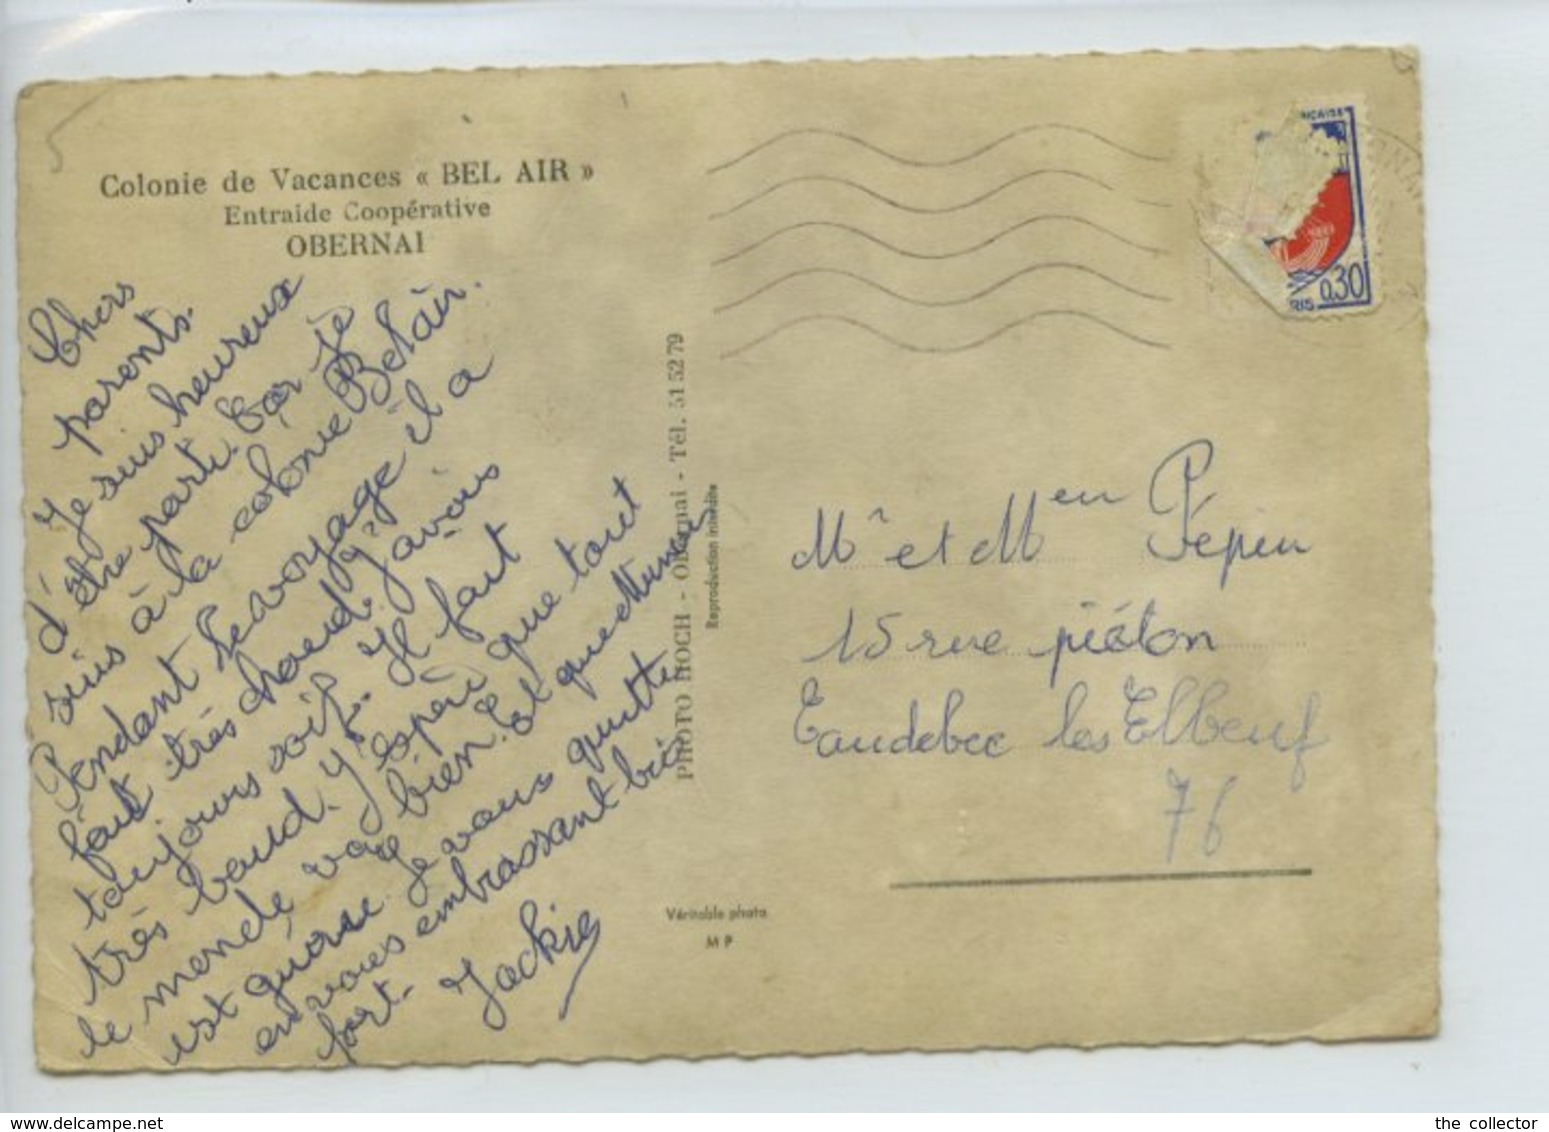 Colonie de Vacances « BEL AIR »
Entraide Coopérative
OBERNAI
Chers
parents.
Je suis heureux
d'être parti. Car je
suis à la colonie Belair.
Pendant le voyage il a
fait très chaud. J'avais
toujours soif. Il fait
très baud. J'espère que tout
le monde va bien. Et que
est guérie. Je vous quitte
en vous embrassant bien
fort. Jackie
PHOTO HOCH - Obernai - Tél. 51 52 79
Reproduction interdite
Véritable photo
M P
NÇAISE
0,30
Mr et Men Pépin
15 rue piéton
Caudebec les Elbeuf
76
the collector